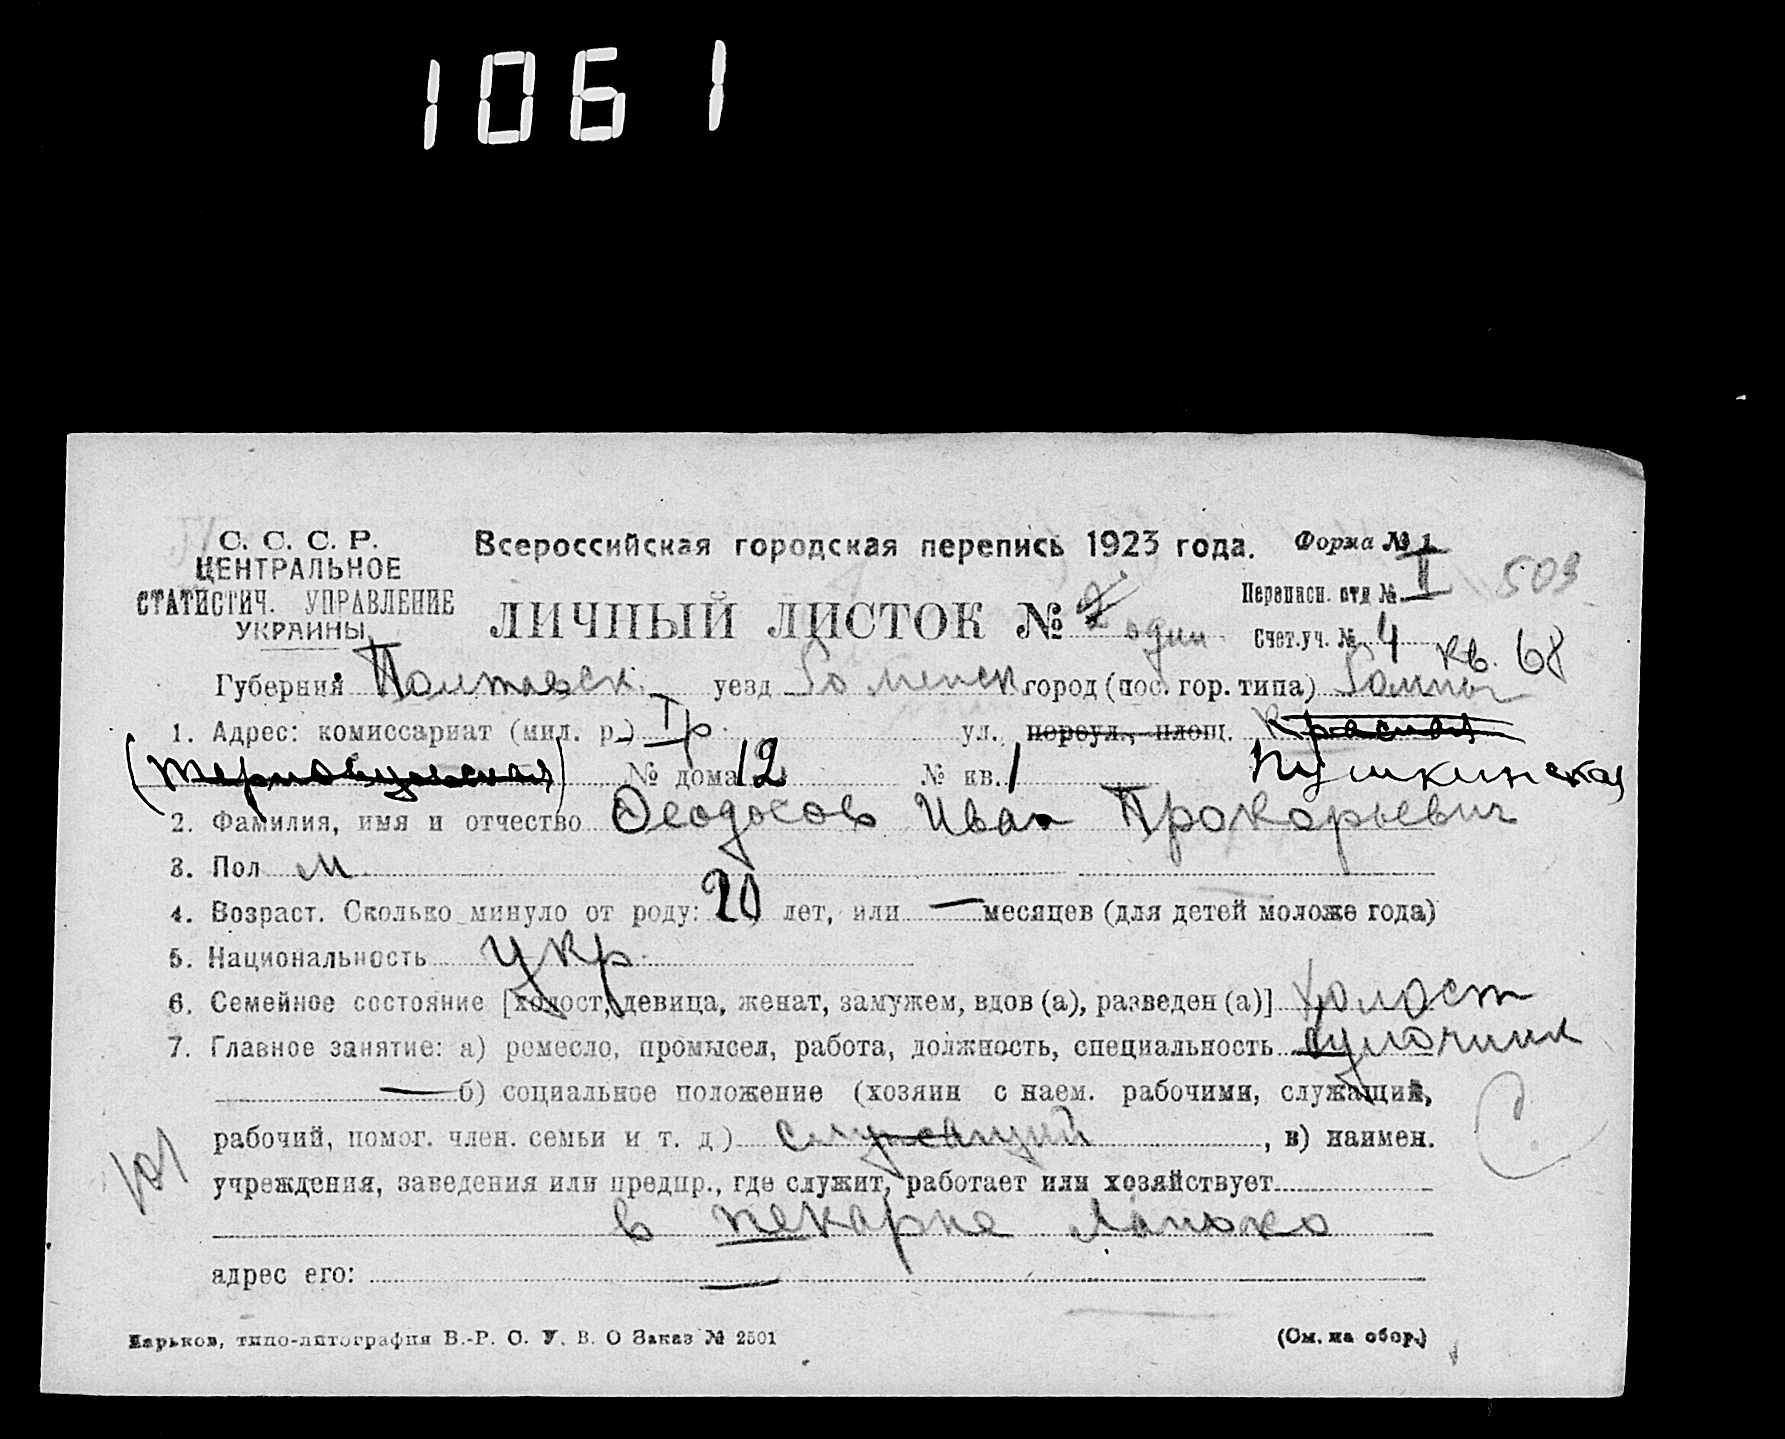 1061
С. С. С. Р. Всероссийская городская перепись 1923 года. Форма № 1
ЦЕНТРАЛЬНОЕ
СТАТИСТИЧ. УПРАВЛЕНИЕ
УКРАИНЫ
Переписн. отд № I 503
ЛИЧНЫЙ ЛИСТОК № 2 один
Счет.уч. № 4 кв. 68
Губерния Полтавск. уезд Роменск город (пос. гор. типа) Ромны
1. Адрес: комиссариат (мил. р.) I р. ул. переул., площ. Красная
№ дома 12 № кв. 1 Пушкинская
2. Фамилия, имя и отчество Феодосов Иван Прокорьевич
3. Пол м
4. Возраст. Сколько минуло от роду: 20 лет, или — месяцев (для детей моложе года)
5. Национальность укр.
6. Семейное состояние [холост, девица, женат, замужем, вдов (а), разведен (а)] холост
7. Главное занятие: а) ремесло, промысел, работа, должность, специальность булочник
— б) социальное положение (хозяин с наем. рабочими, служащий,
рабочий, помог. член. семьи и т. д.) служащий, в) наимен.
учреждения, заведения или предпр., где служит, работает или хозяйствует
в пекарне
адрес его: —
Харьков, типо-литография В.-Р. С. У. В. О Заказ № 2501 (См. на обор.)